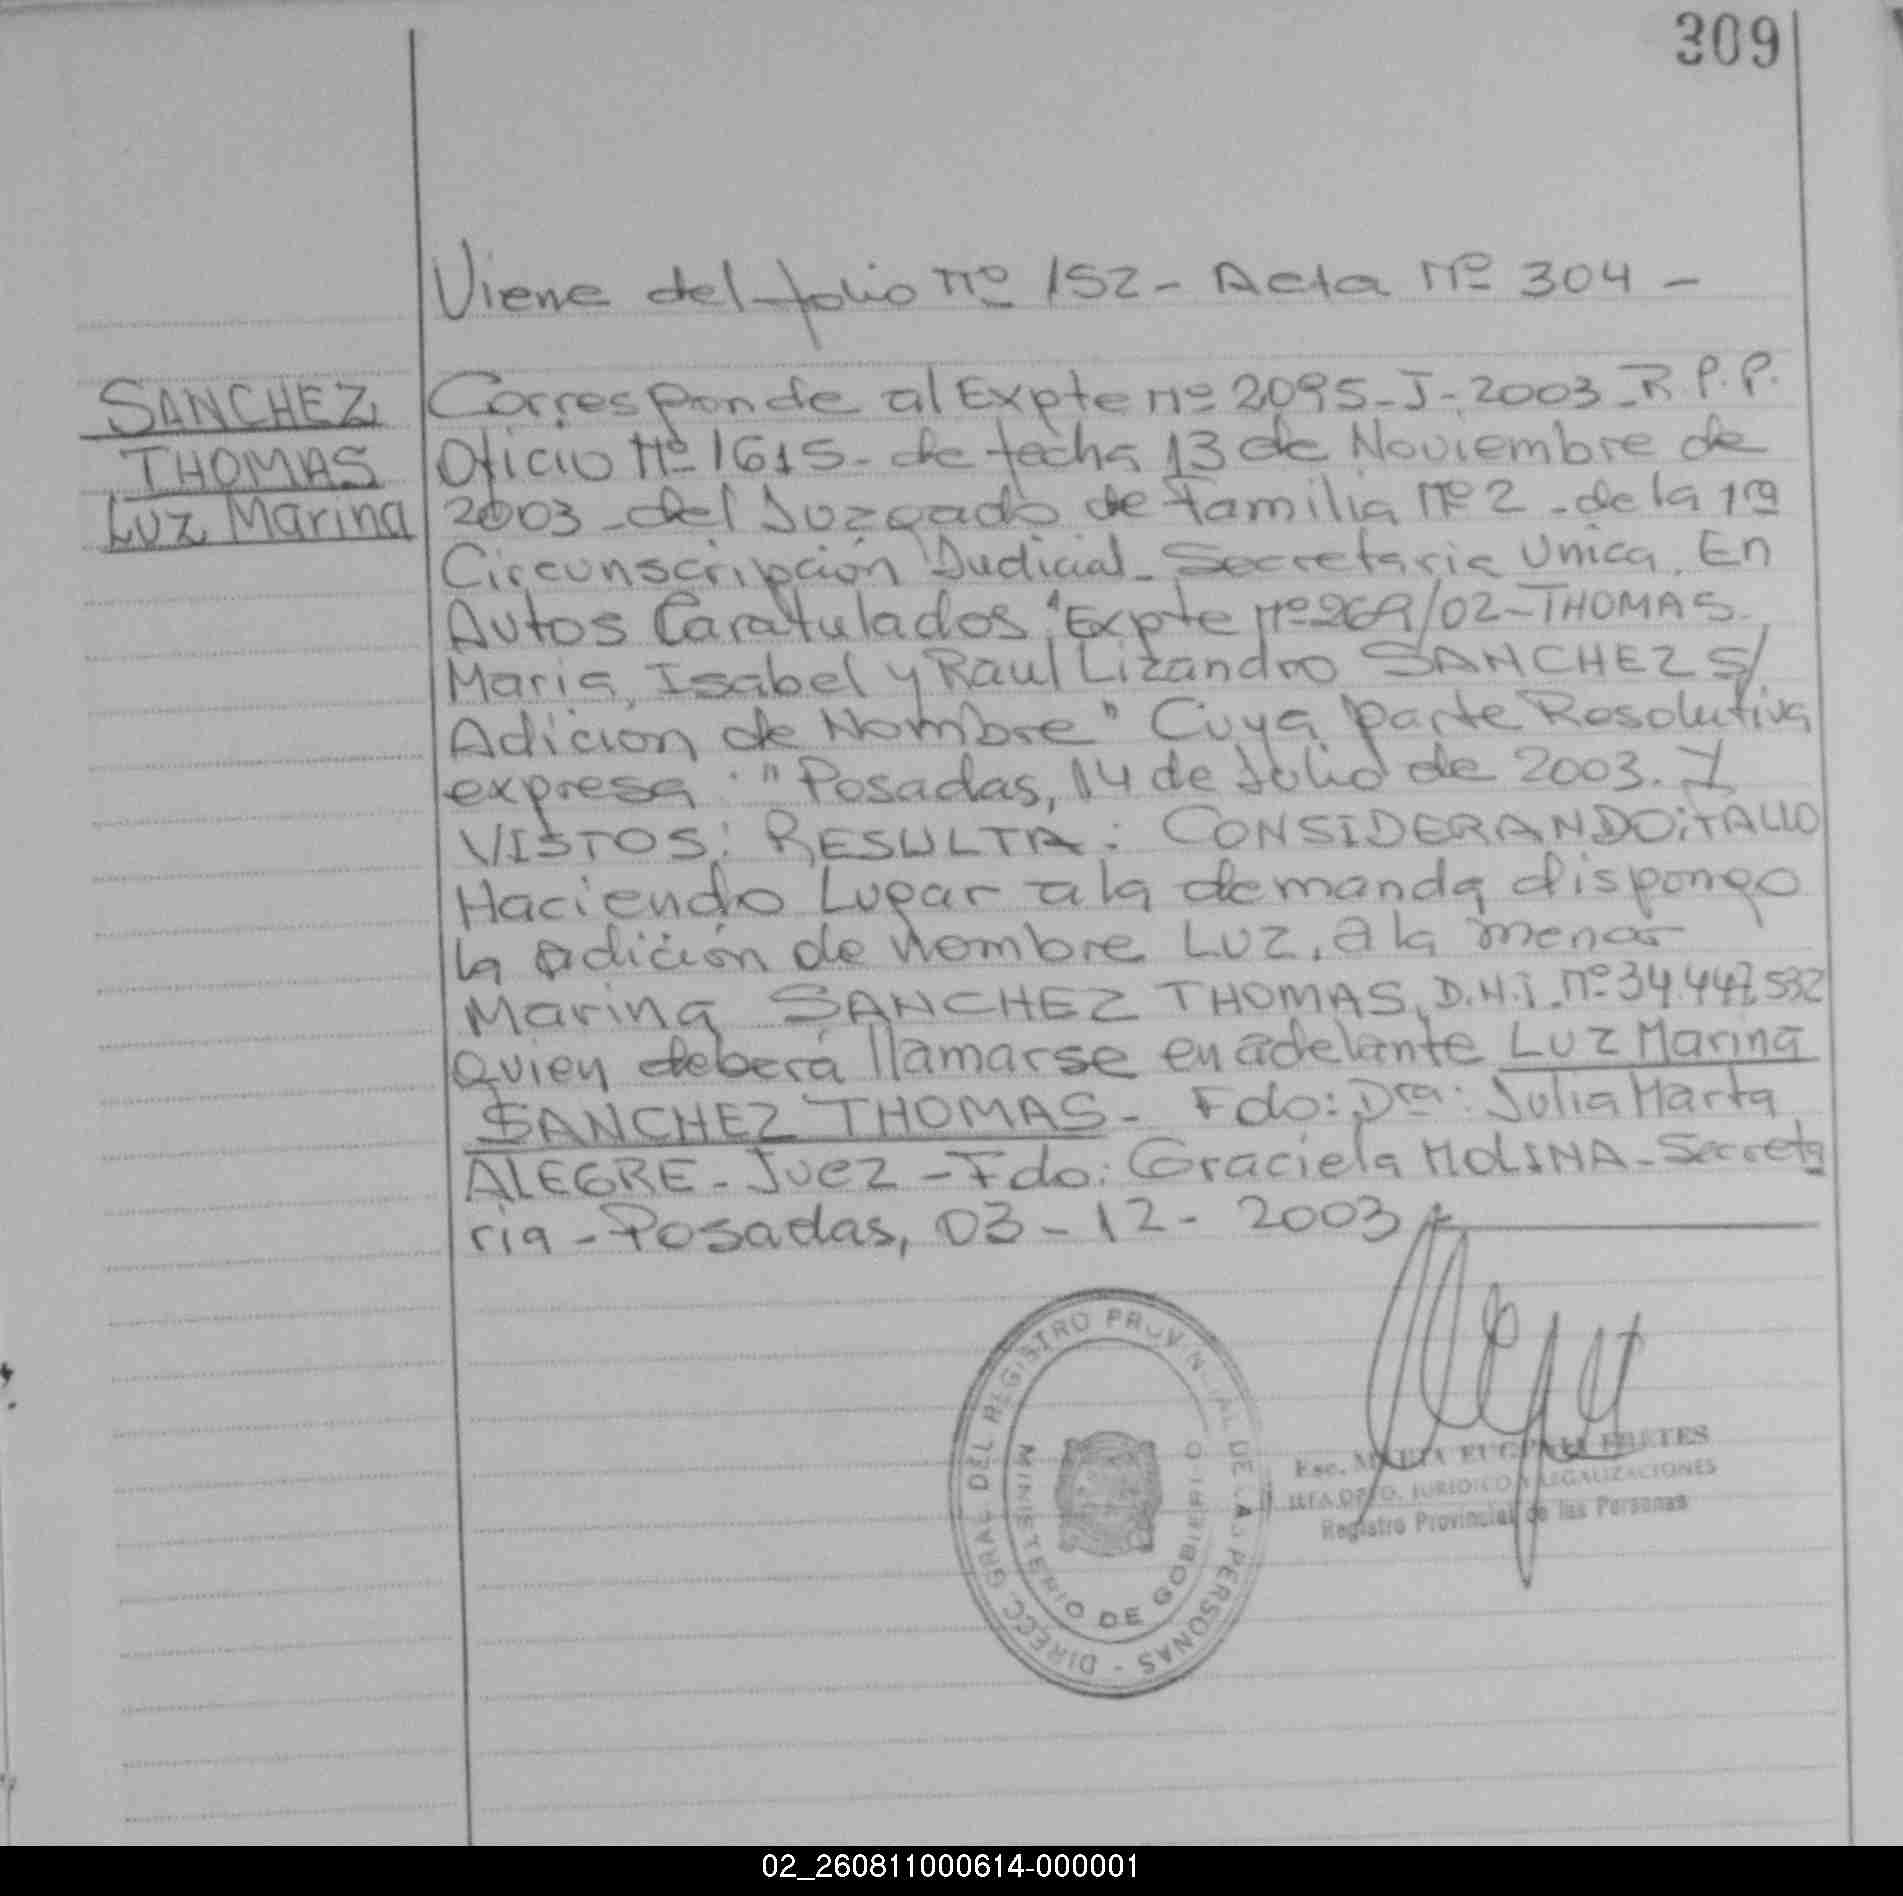 309
Viene del folio Nº 152 - Acta Nº 304 -
SANCHEZ
THOMAS
Luz Marina
Corresponde al Expte nº 2095-J-2003-R.P.P.
Oficio Nº 1615- de fecha 13 de Noviembre de
2003 - del Juzgado de Familia Nº 2 - de la 1ra
Circunscripción Judicial - Secretaria Unica. En
Autos Caratulados "Expte Nº 269/02-THOMAS
Maria, Isabel y Raul Lizandro SANCHEZ S/
Adicion de Nombre" Cuya parte Resolutiva
expresa: "Posadas, 14 de Julio de 2003. Y
VISTOS: RESULTA: CONSIDERANDO: FALLO
Haciendo Lugar a la demanda dispongo
la adición de nombre LUZ, a la menor
Marina SANCHEZ THOMAS, D.N.i. nº 34.447.532
Quien deberá llamarse en adelante LUZ Marina
SANCHEZ THOMAS- Fdo: Dra: Julia Marta
ALEGRE - Juez - Fdo: Graciela MOLINA - Secreta
ria - Posadas, 03-12-2003
DIRECC. GRAL DEL REGISTRO PROVINCIAL DE LAS PERSONAS -
MINISTERIO DE GOBIERNO
Esc. MARIA EUGENIA FRETES
JEFA DPTO. JURIDICO Y LEGALIZACIONES
Registro Provincial de las Personas
02_260811000614-000001